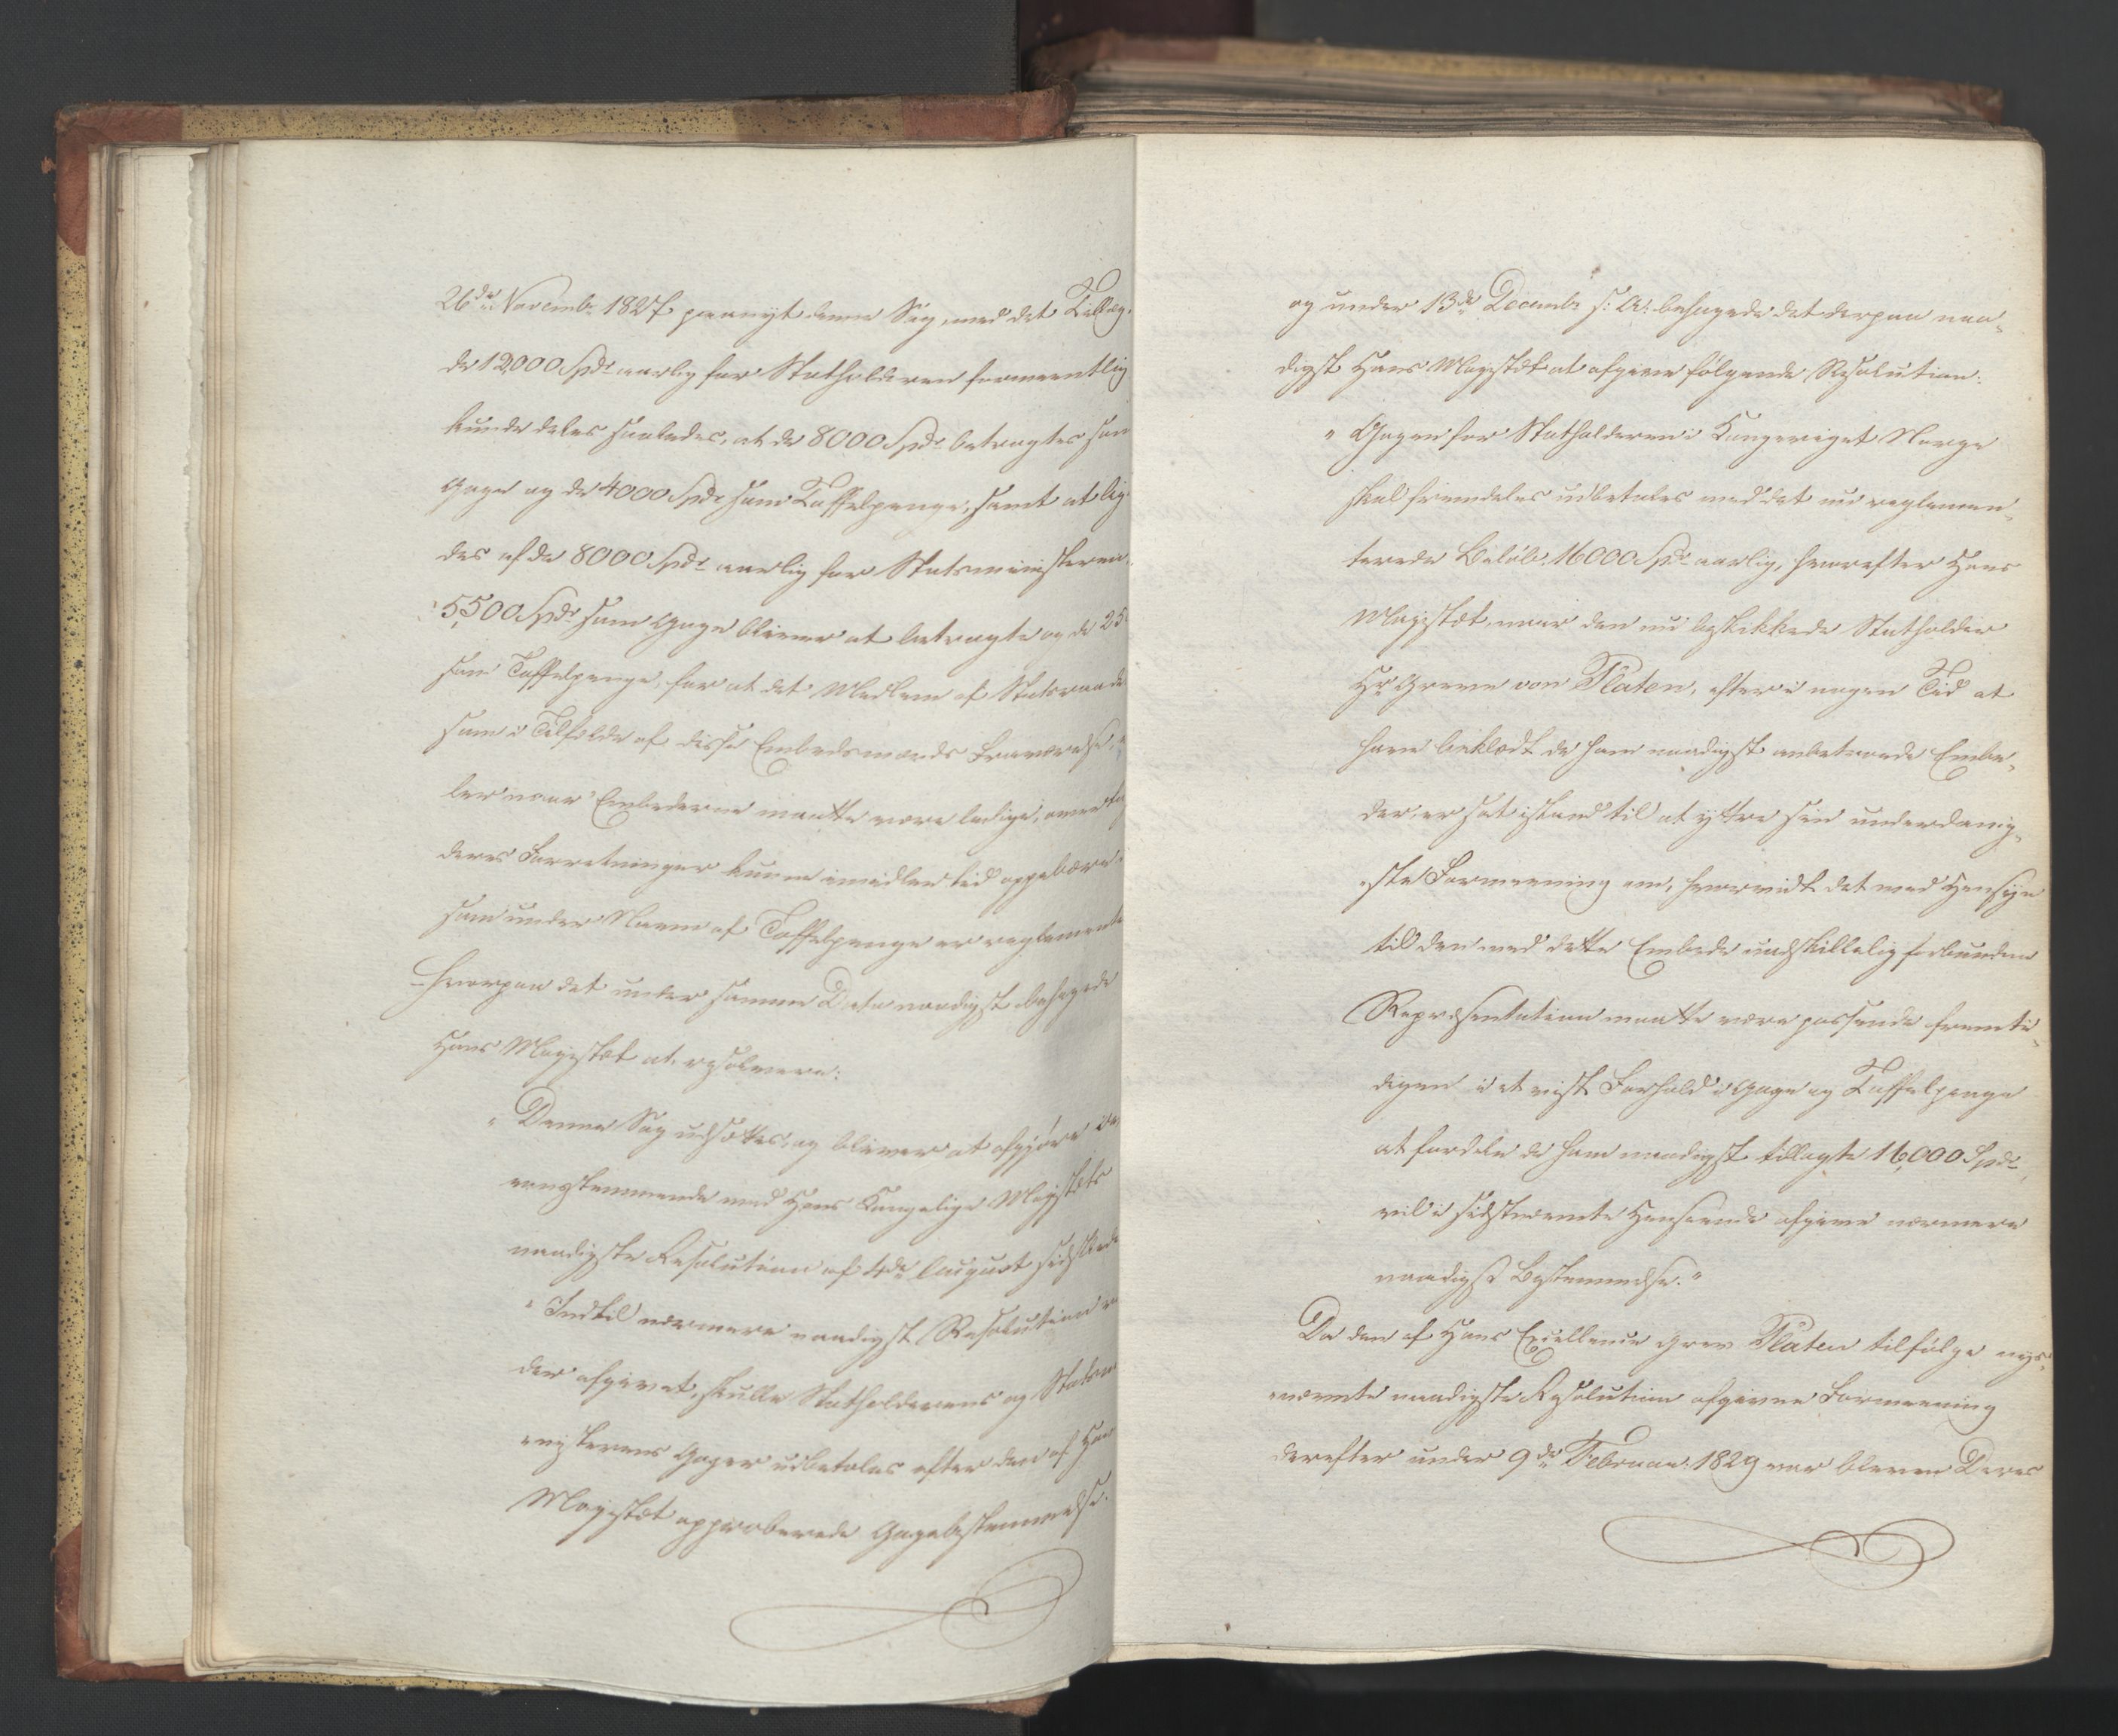 26de Novembr 1827 paanyt denne Sag, med det Tillæg,
de 12000 Spdr aarlig for Statholderen formeentlig
kunde deles saaledes, at de 8000 Spdr betragtes som
Gage og de 4000 Spdr som Taffelpenge, samt at lig-
des af de 8000 Spdr aarlig for Statsministeren
5,500 Spdr som Gage bliver at betragte og de 25
som Taffelpenge, for at det Medlem af Statsraadet
som i Tilfælde af disse Embedsmænds Fraværelse,
ler naar Embederne maatte være ledige,
deres Forretninger kunne imidlertid oppebære
som under Navn af Taffelpenge er reglemente
hvorpaa det under samme Dato naadigst behagede
Hans Majestæt at resolvere:
"Denne Sag udsættes, og bliver at afgjøre
eensstemmende med Hans Kongelige Majestæts
naadigste Resolution af 4de August sidstled
"Indtil nærmere naadigst Resolution
der afgivet, skulle Statholderens og Statsm
nisterens Gager udbetales efter den af Hans
Majestæt approberede Gagebestemmelse.
og under 13de Decembr s: A: behagede det derpaa naa-
digst Hans Majestæt at afgive følgende Resolution:
"Gagen for Statholderen i Kongeriget Norge
skal fremdeles udbetales med det nu reglemen-
terede Beløb, 16000 Spdr aarlig, hvorefter Hans
Majestæt, naar den nu beskikkede Statholder
Hr Greve von Platen, efter i nogen Tid at
have beklædt de ham naadigst anbetroede Embe-
der, er sat istand til at yttre sin underdanig-
ste Formeening om, hvorvidt det med Hensyn
til den med dette Embede uadskillelig forbundne
Repræsentation maatte være passende fremti-
digen i et vist Forhold i Gage og Taffelpenge
at fordele de ham naadigst tillagte 16,000 Spdr,
vil i sidstnævnte Henseende afgive nærmere
naadigst Bestemmelse."
Da den af Hans Excellence Grev Platen tilfølge nys-
nævnte naadigste Resolution afgivne Formeening
derefter under 9de Februar 1829 var bleven Deres